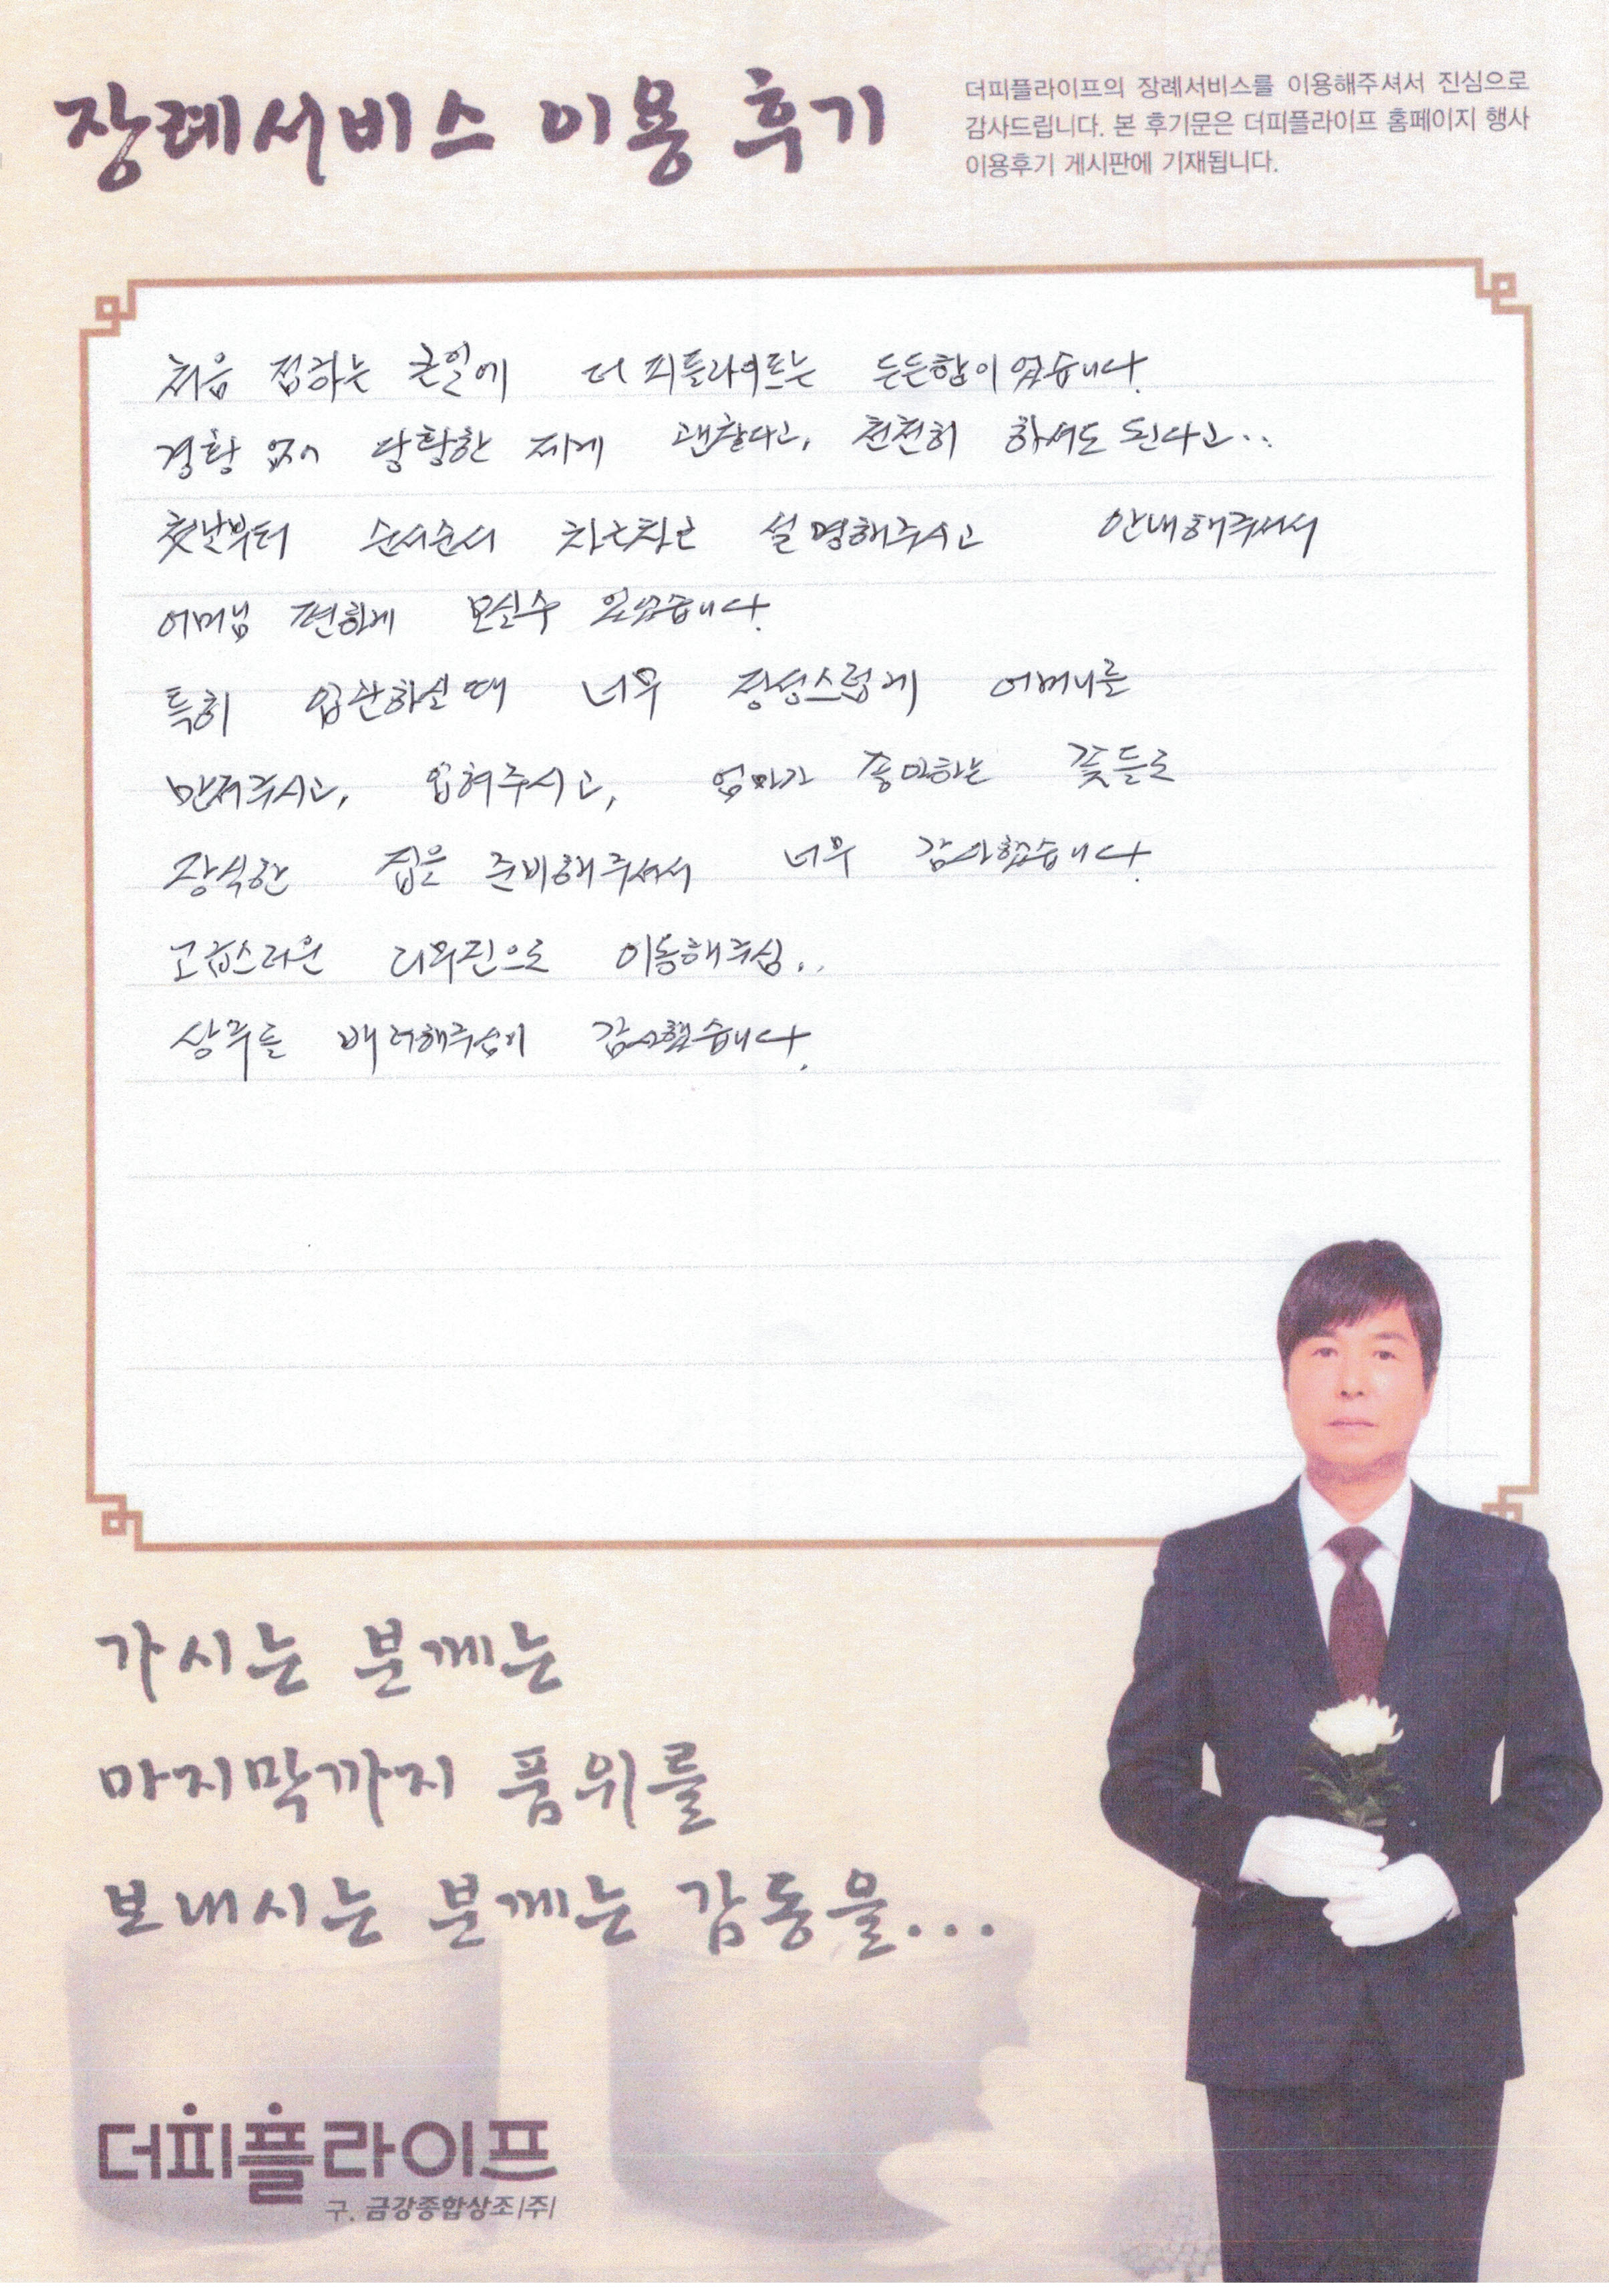 장례서비스 이용 후기
더피플라이프의 장례서비스를 이용해주셔서 진심으로
감사드립니다. 본 후기문은 더피플라이프 홈페이지 행사
이용후기 게시판에 기재됩니다.
처음 접하는 큰일에 더 피플라이프는 든든함이 였습니다.
경황 없이 당황한 저에게 괜찮다고, 천천히 하셔도 된다고..
첫날부터 순서순서 차근차근 설명해주시고 안내해주셔서
어머님 편하게 모실수 있었습니다.
특히 입관하실때 너무 정성스럽게 어머니를
만져주시고, 입혀주시고, 엄마가 좋아하는 꽃들로
장식한 집을 준비해주셔서 너무 감사했습니다.
고급스러운 리무진으로 이동해주심..
상주를 배려해주심이 감사했습니다.
가시는 분께는
마지막까지 품위를
보내시는 분께는 감동을...
더피플라이프
구. 금강종합상조(주)